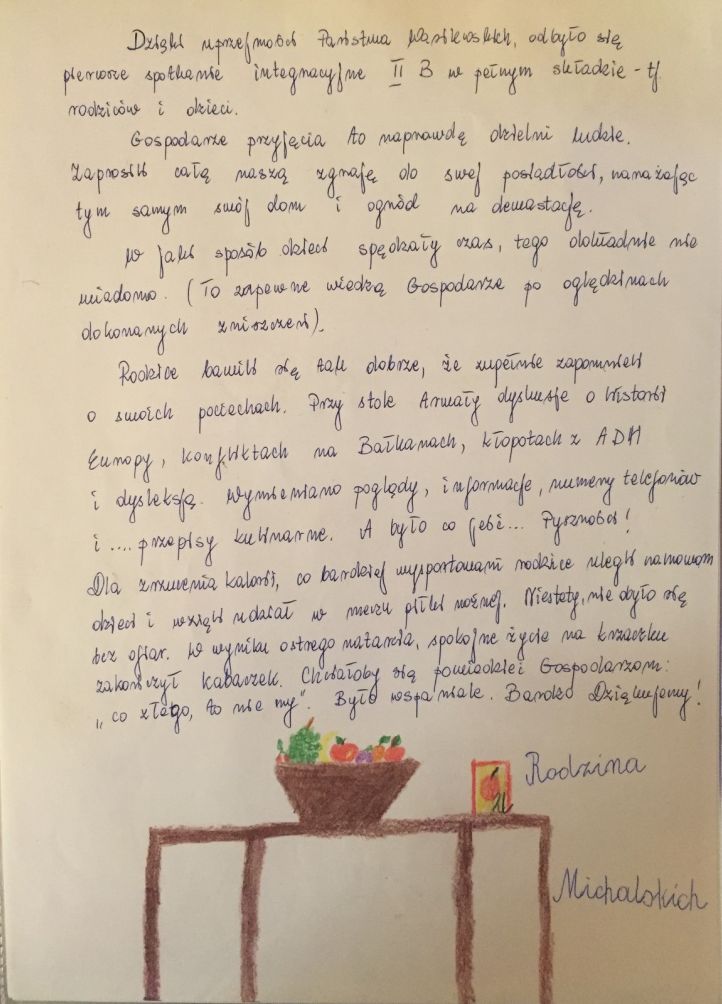 Dzięki uprzejmości Państwa Wasilewskich, odbyło się
pierwsze spotkanie integracyjne II B w pełnym składzie - tj
rodziców i dzieci.
Gospodarze przyjęcia to naprawdę dzielni ludzie.
Zaprosili całą naszą zgraję do swej posiadłości, narażając
tym samym swój dom i ogród na dewastację.
W jaki sposób dzieci spędzały czas, tego dokładnie nie
wiadomo. (To zapewne wiedzą Gospodarze po oględzinach
dokonanych zniszczeń).
Rodzice bawili się tak dobrze, że zupełnie zapomnieli
o swoich pociechach. Przy stole trwały dyskusje o Historii
Europy, konfliktach na Bałkanach, kłopotach z ADM
i dysleksją. Wymieniano poglądy, informacje, numery telefonów
i .... przepisy kulinarne. A było co jeść... Pyszności!
Dla zrzucenia kalorii, co bardziej wysportowani rodzice ulegli namowom
dzieci i wzięli udział w meczu piłki nożnej. Niestety, nie obyło się
bez ofiar. W wyniku ostrego natarcia, spokojne życie na krzaczku
zakończył kabaczek. Chciałoby się powiedzieć Gospodarzom:
„co złego, to nie my". Było wspaniale. Bardzo Dziękujemy!
Rodzina
Michalskich